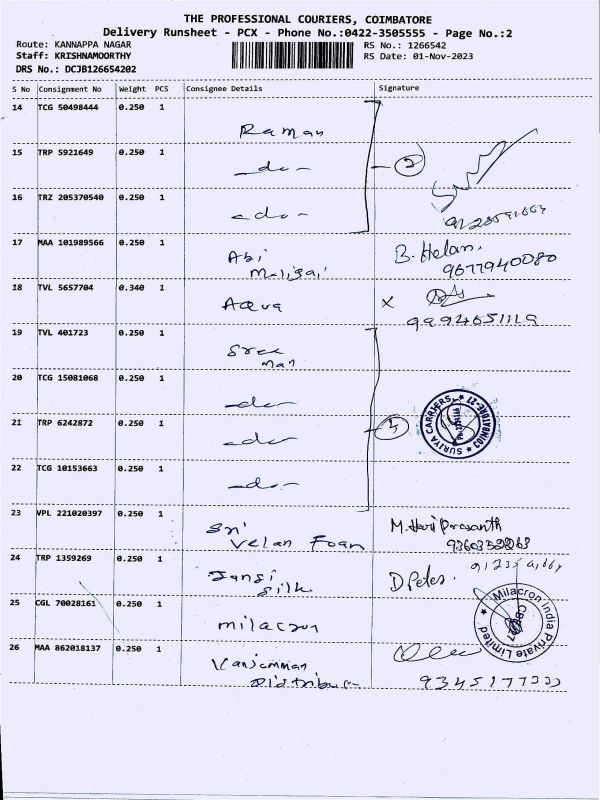 THE PROFESSIONAL COURIERS, COIMBATORE
Delivery Runsheet - PCX - Phone No.:0422-3505555 - Page No.:2
Route: KANNAPPA NAGAR
Staff: KRISHNAMOORTHY
DRS No.: DCJB126654202
RS No.: 1266542
RS Date: 01-Nov-2023
S No Consignment No Weight PCS Consignee Details Signature
14 TCG 50498444 0.250 1
Raman
15 TRP 5921649 0.250 1
-do-
16 TRZ 205370540 0.250 1
-do-
17 MAA 101989566 0.250 1
Abi B. Helan,
9677940080
18 TVL 5657704 0.340 1
Aqua X
9994651119
19 TVL 401723 0.250 1
Sree
man
20 TCG 15081068 0.250 1
-do-
21 TRP 6242872 0.250 1
-do-
SURIYA CARRIERS
COIMBATORE-27
22 TCG 10153663 0.250 1
-do-
23 VPL 221020397 0.250 1
Sri M. Hari Prasanth
Velan Foam
24 TRP 1359269 0.250 1
Silk
25 CGL 70028161 0.250 1
milacron
Milacron India Private Limited
26 MAA 862018137 0.250 1